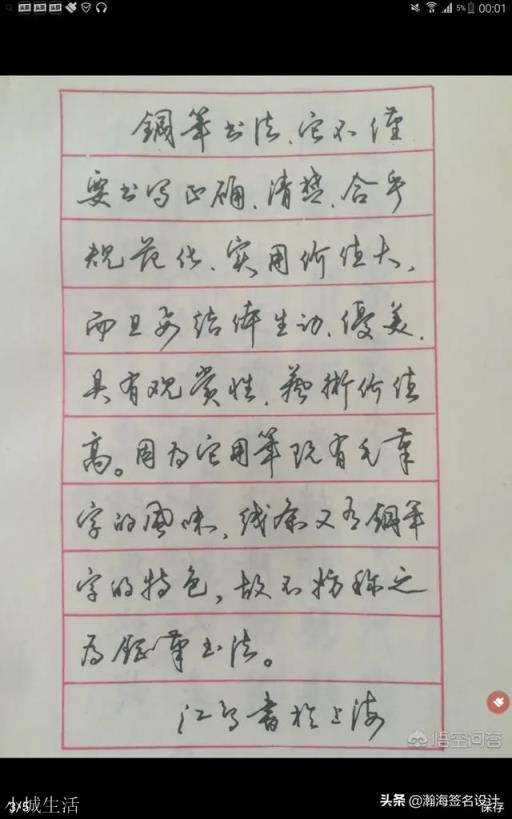 5% 00:01
鋼筆书法、它不僅
要书写正确、清楚、合乎
规范化、实用价值大,
而且要结体生动、優美,
具有观赏性,藝術价值
高。因为它用筆既有毛筆
字的風味,线条又有鋼筆
字的特色,故不妨称之
为鋼筆书法。
书於上海
悟空问答
3/5
小城生活
头条 @瀚海签名设计
保存